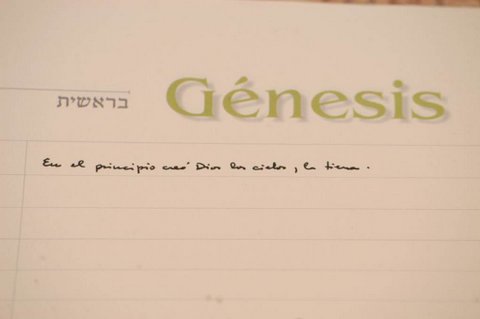 בראשית Génesis
En el principio creó Dios los cielos, la tierra.